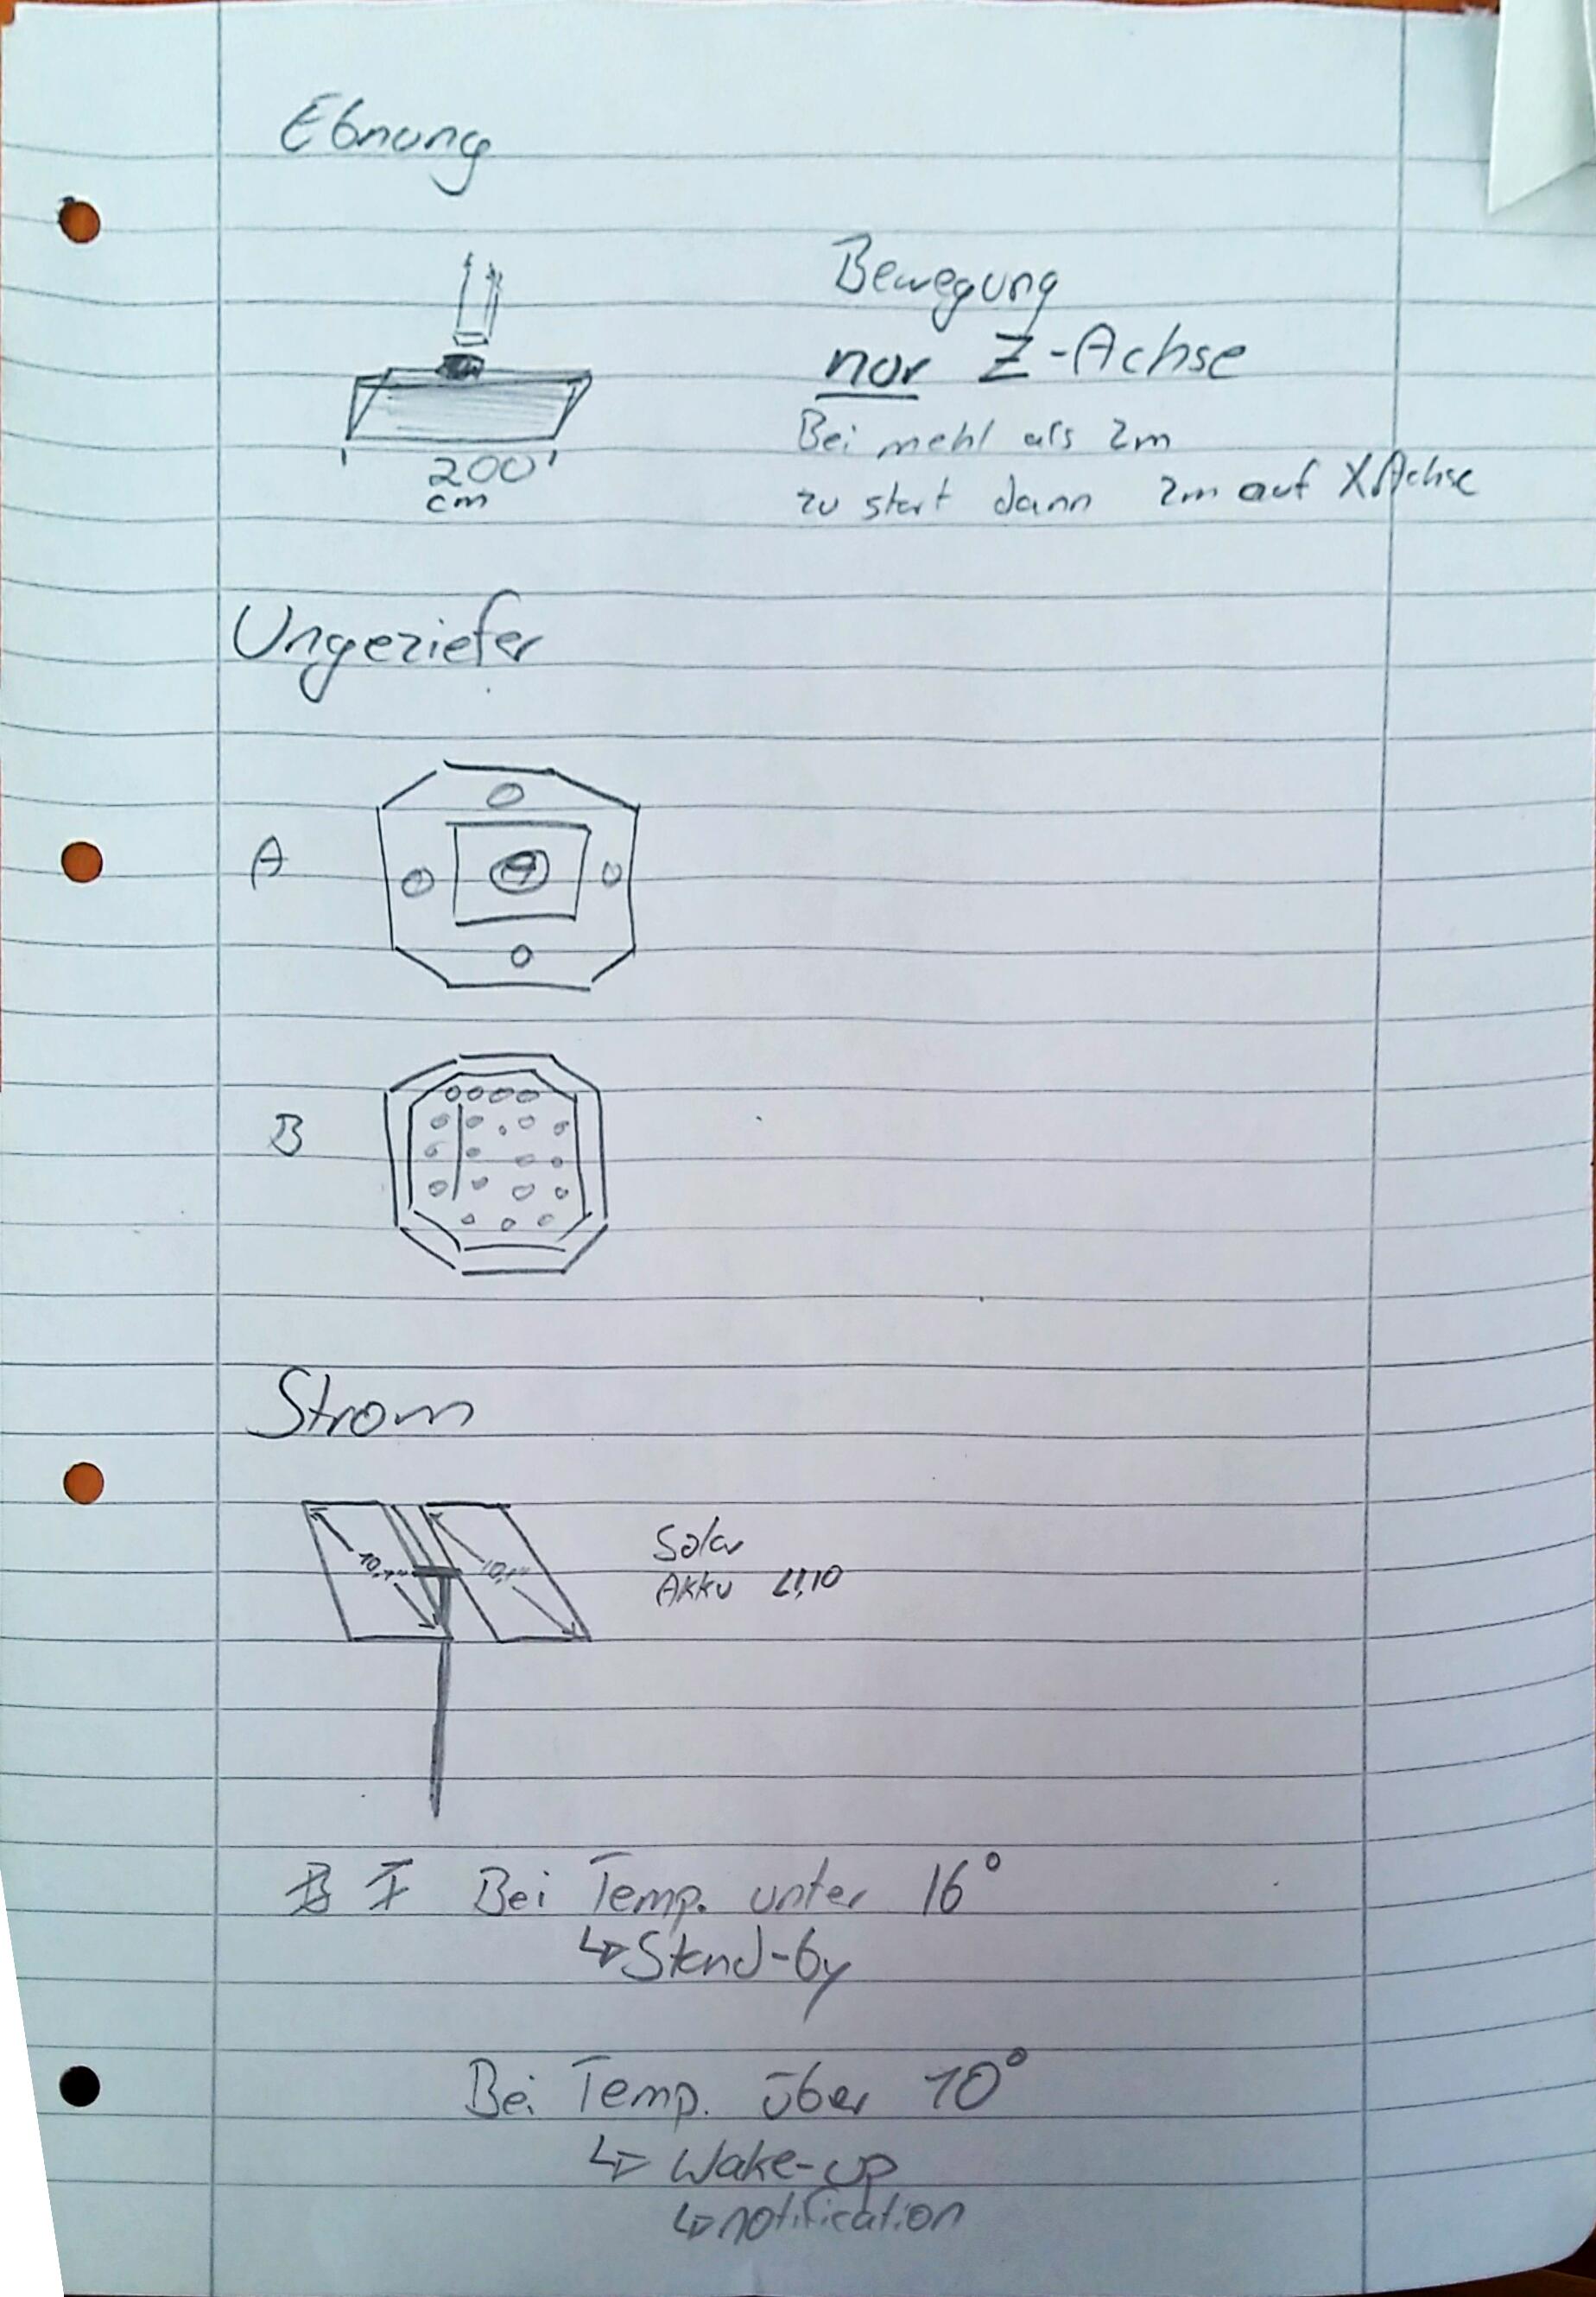 Ebnung
Bewegung
nur Z-Achse
Bei mehl als 2m
zu start dann 2m auf X Achse
200
cm
Ungeziefer
A
B
Strom
10,1" 10,1"
Solar
Akku
Bei Temp. unter 16°
↳ Stand-by
Bei Temp. über 10°
↳ Wake-up
↳ notification